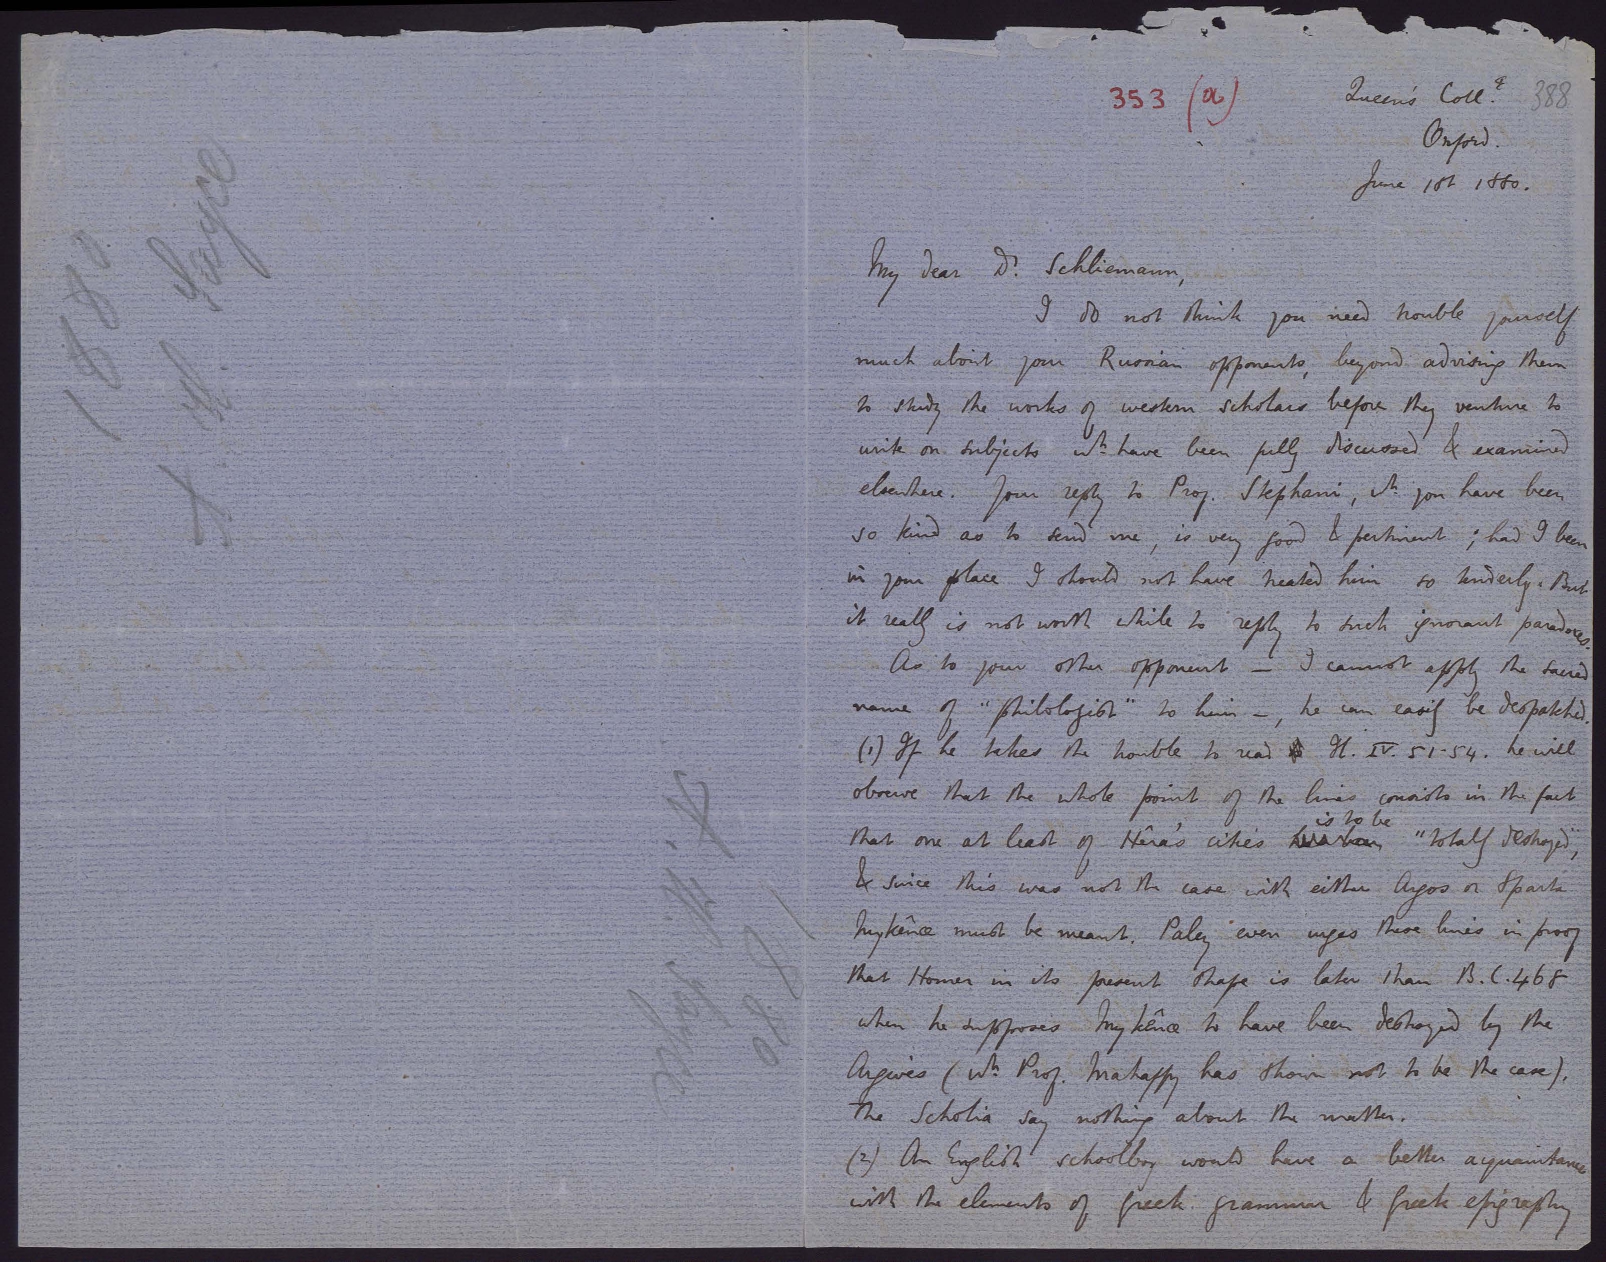 1880
A. H. Sayce
A. H. Sayce
1880
353 (a)
388
Queen's Coll.
Oxford.
June 1st 1880.
My dear Dr. Schliemann,
I do not think you need trouble yourself
much about your Russian opponents, beyond advising them
to study the works of western scholars before they venture to
write on subjects wh. have been fully discussed & examined
elsewhere. Your reply to Prof. Stephani, wh. you have been
so kind as to send me, is very good & pertinent; had I been
in your place I should not have treated him so tenderly. But
it really is not worth while to reply to such ignorant paradoxes.
As to your other opponent – I cannot apply the sacred
name of "philologist" to him –, he can easily be despatched.
(1) If he takes the trouble to read Il. IV. 51-54. he will
observe that the whole point of the lines consists in the fact
that one at least of Hêra's cities is to be "totally destroyed",
& since this was not the case with either Argos or Sparta
Mykênæ must be meant. Paley even urges these lines in proof
that Homer in its present shape is later than B.C. 468
when he supposes Mykênæ to have been destroyed by the
Argives (wh. Prof. Mahaffy has shown not to be the case).
The Scholia say nothing about the matter.
(2) An English schoolboy would have a better acquaintance
with the elements of Greek grammar & Greek epigraphy